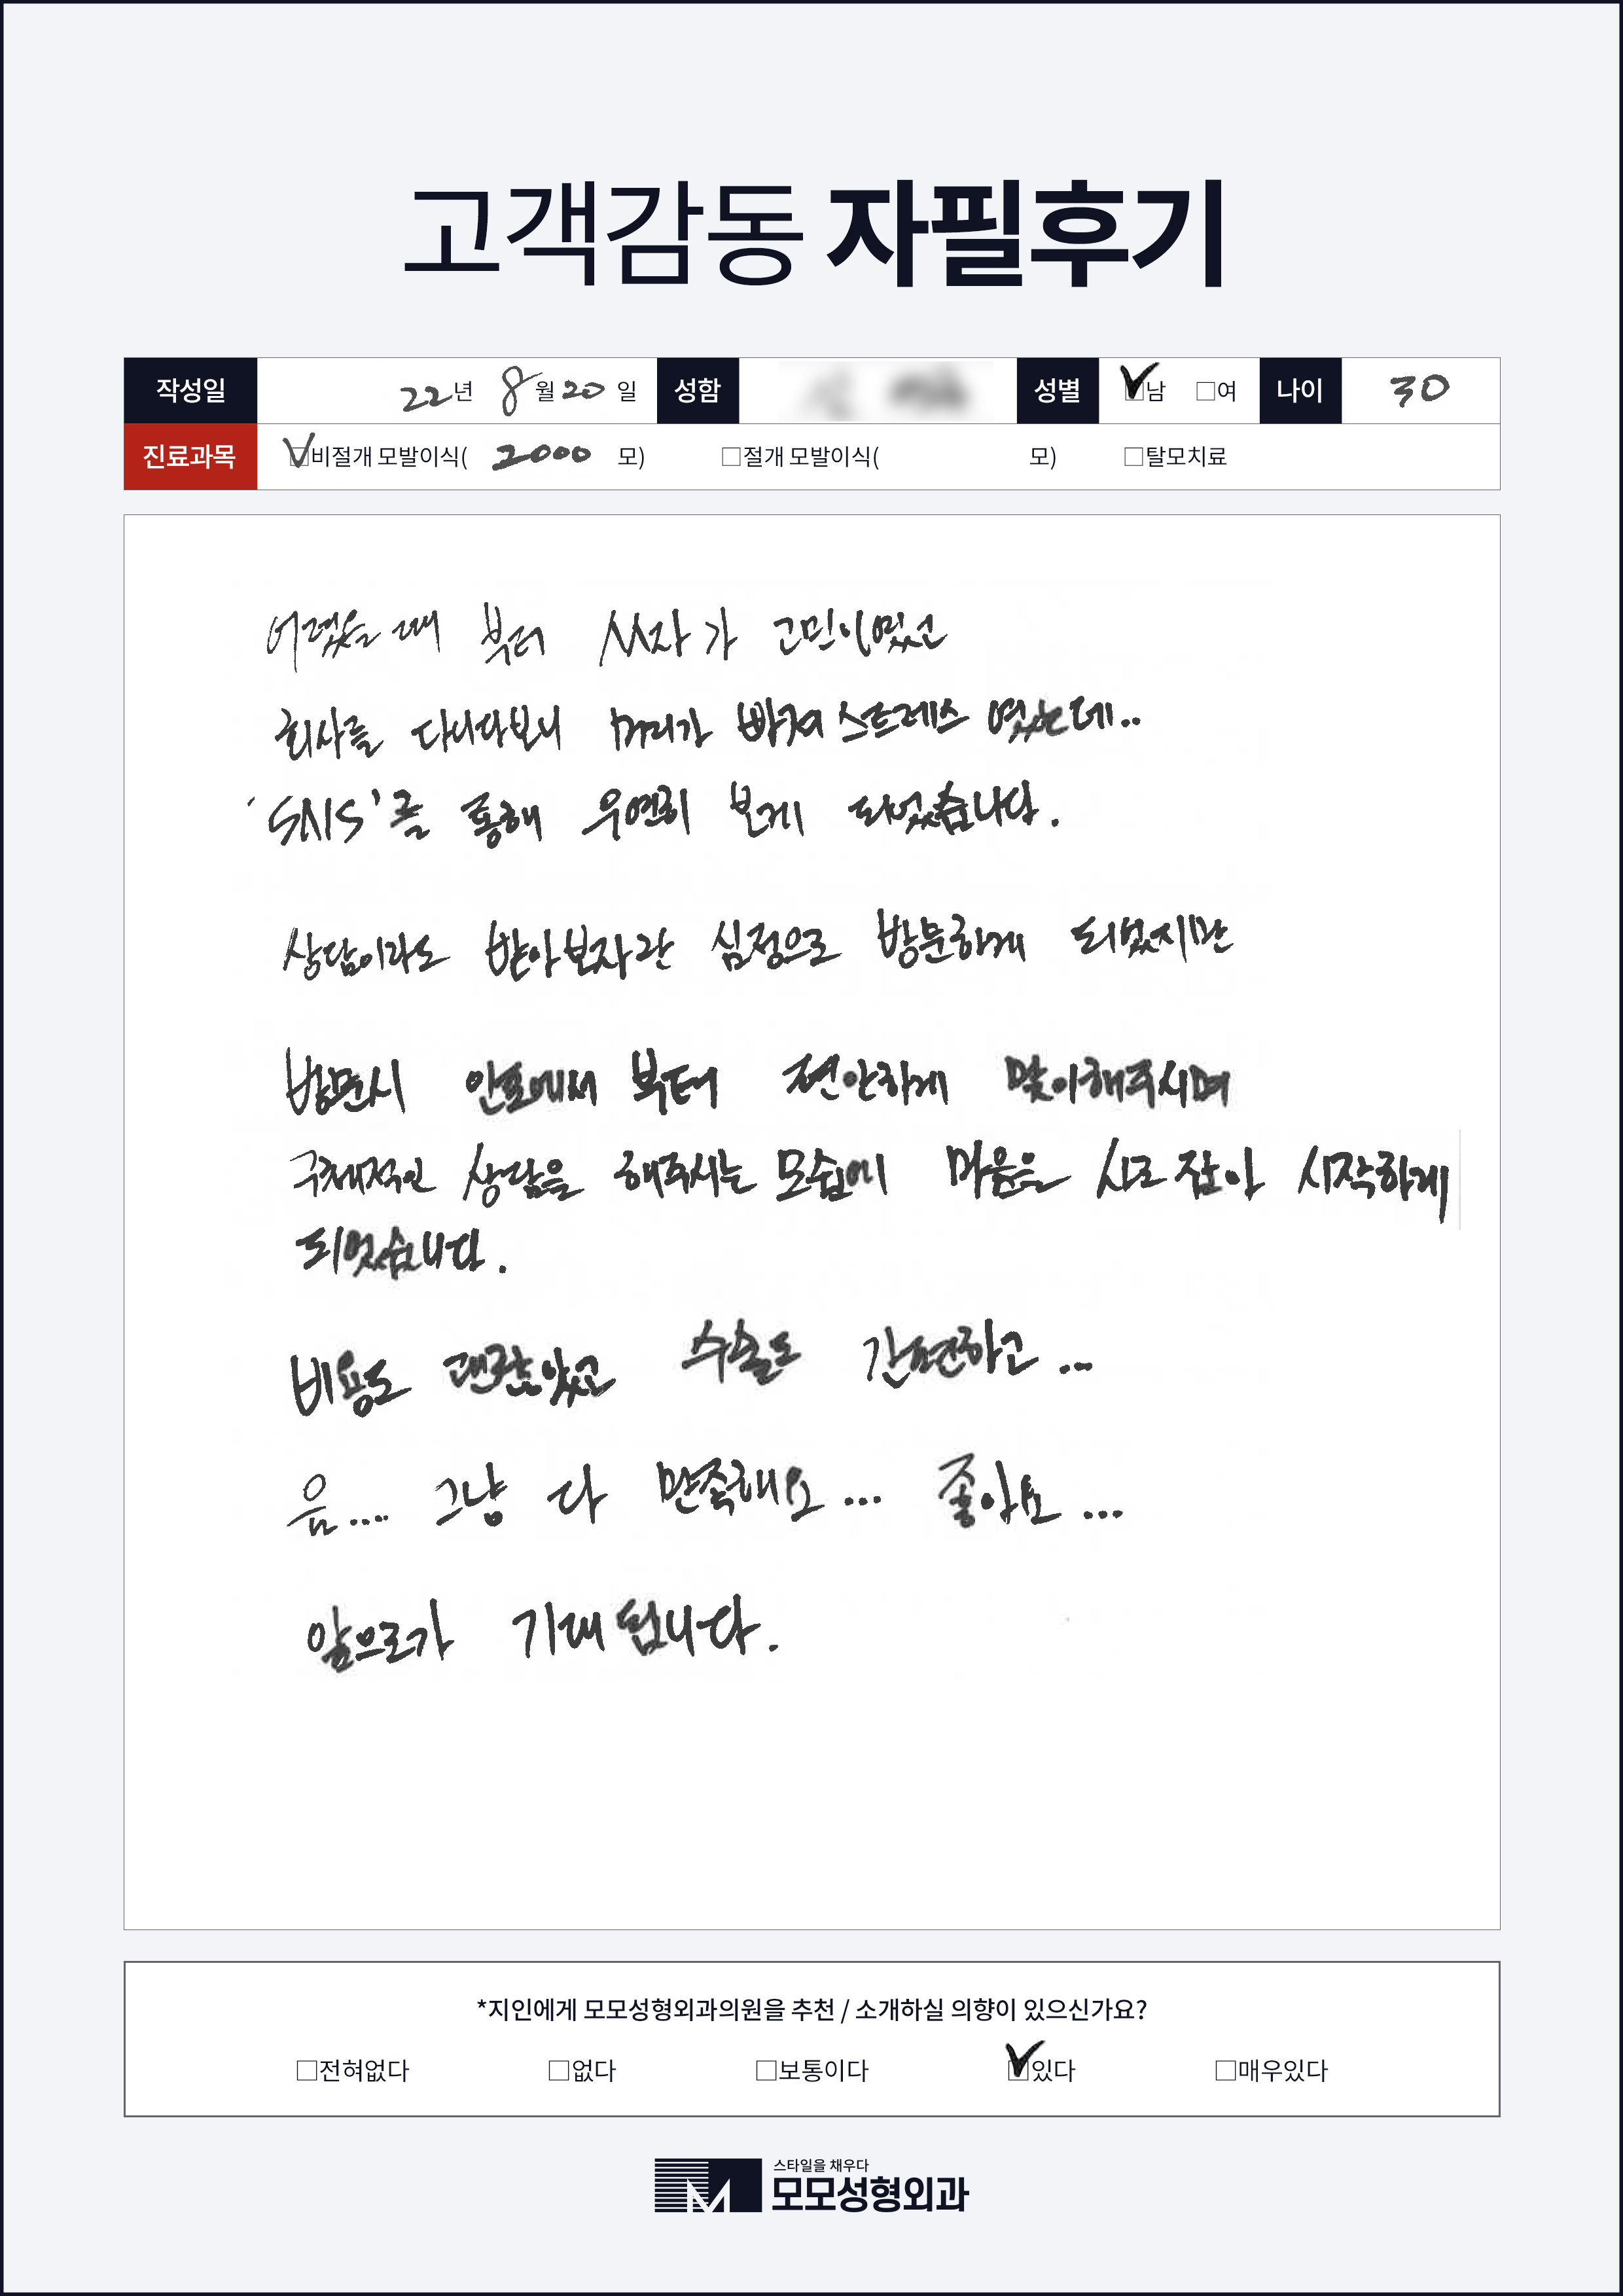 고객감동 자필후기
작성일 22년 8월 20일 성함 성별 ☑남 □여 나이 30
진료과목 ☑비절개 모발이식( 2000 모) □절개 모발이식( 모) □탈모치료
어렸을때 부터 M자가 고민이였고
회사를 다니다보니 머리가 빠져 스트레스 였는데..
'SNS'를 통해 우연히 보게 되었습니다.
상담이라도 받아보자란 심정으로 방문하게 되었지만
방문시 안포에서 부터 편안하게 맞이해주시며
구체적인 상담을 해주시는 모습에 마음을 사로잡아 시작하게
되었습니다.
비용도 괜찮았고 수술도 간편하고...
음.... 그냥 다 만족해요... 좋아요...
앞으로가 기대됩니다.
*지인에게 모모성형외과의원을 추천 / 소개하실 의향이 있으신가요?
□전혀없다 □없다 □보통이다 ☑있다 □매우있다
스타일을 채우다
모모성형외과